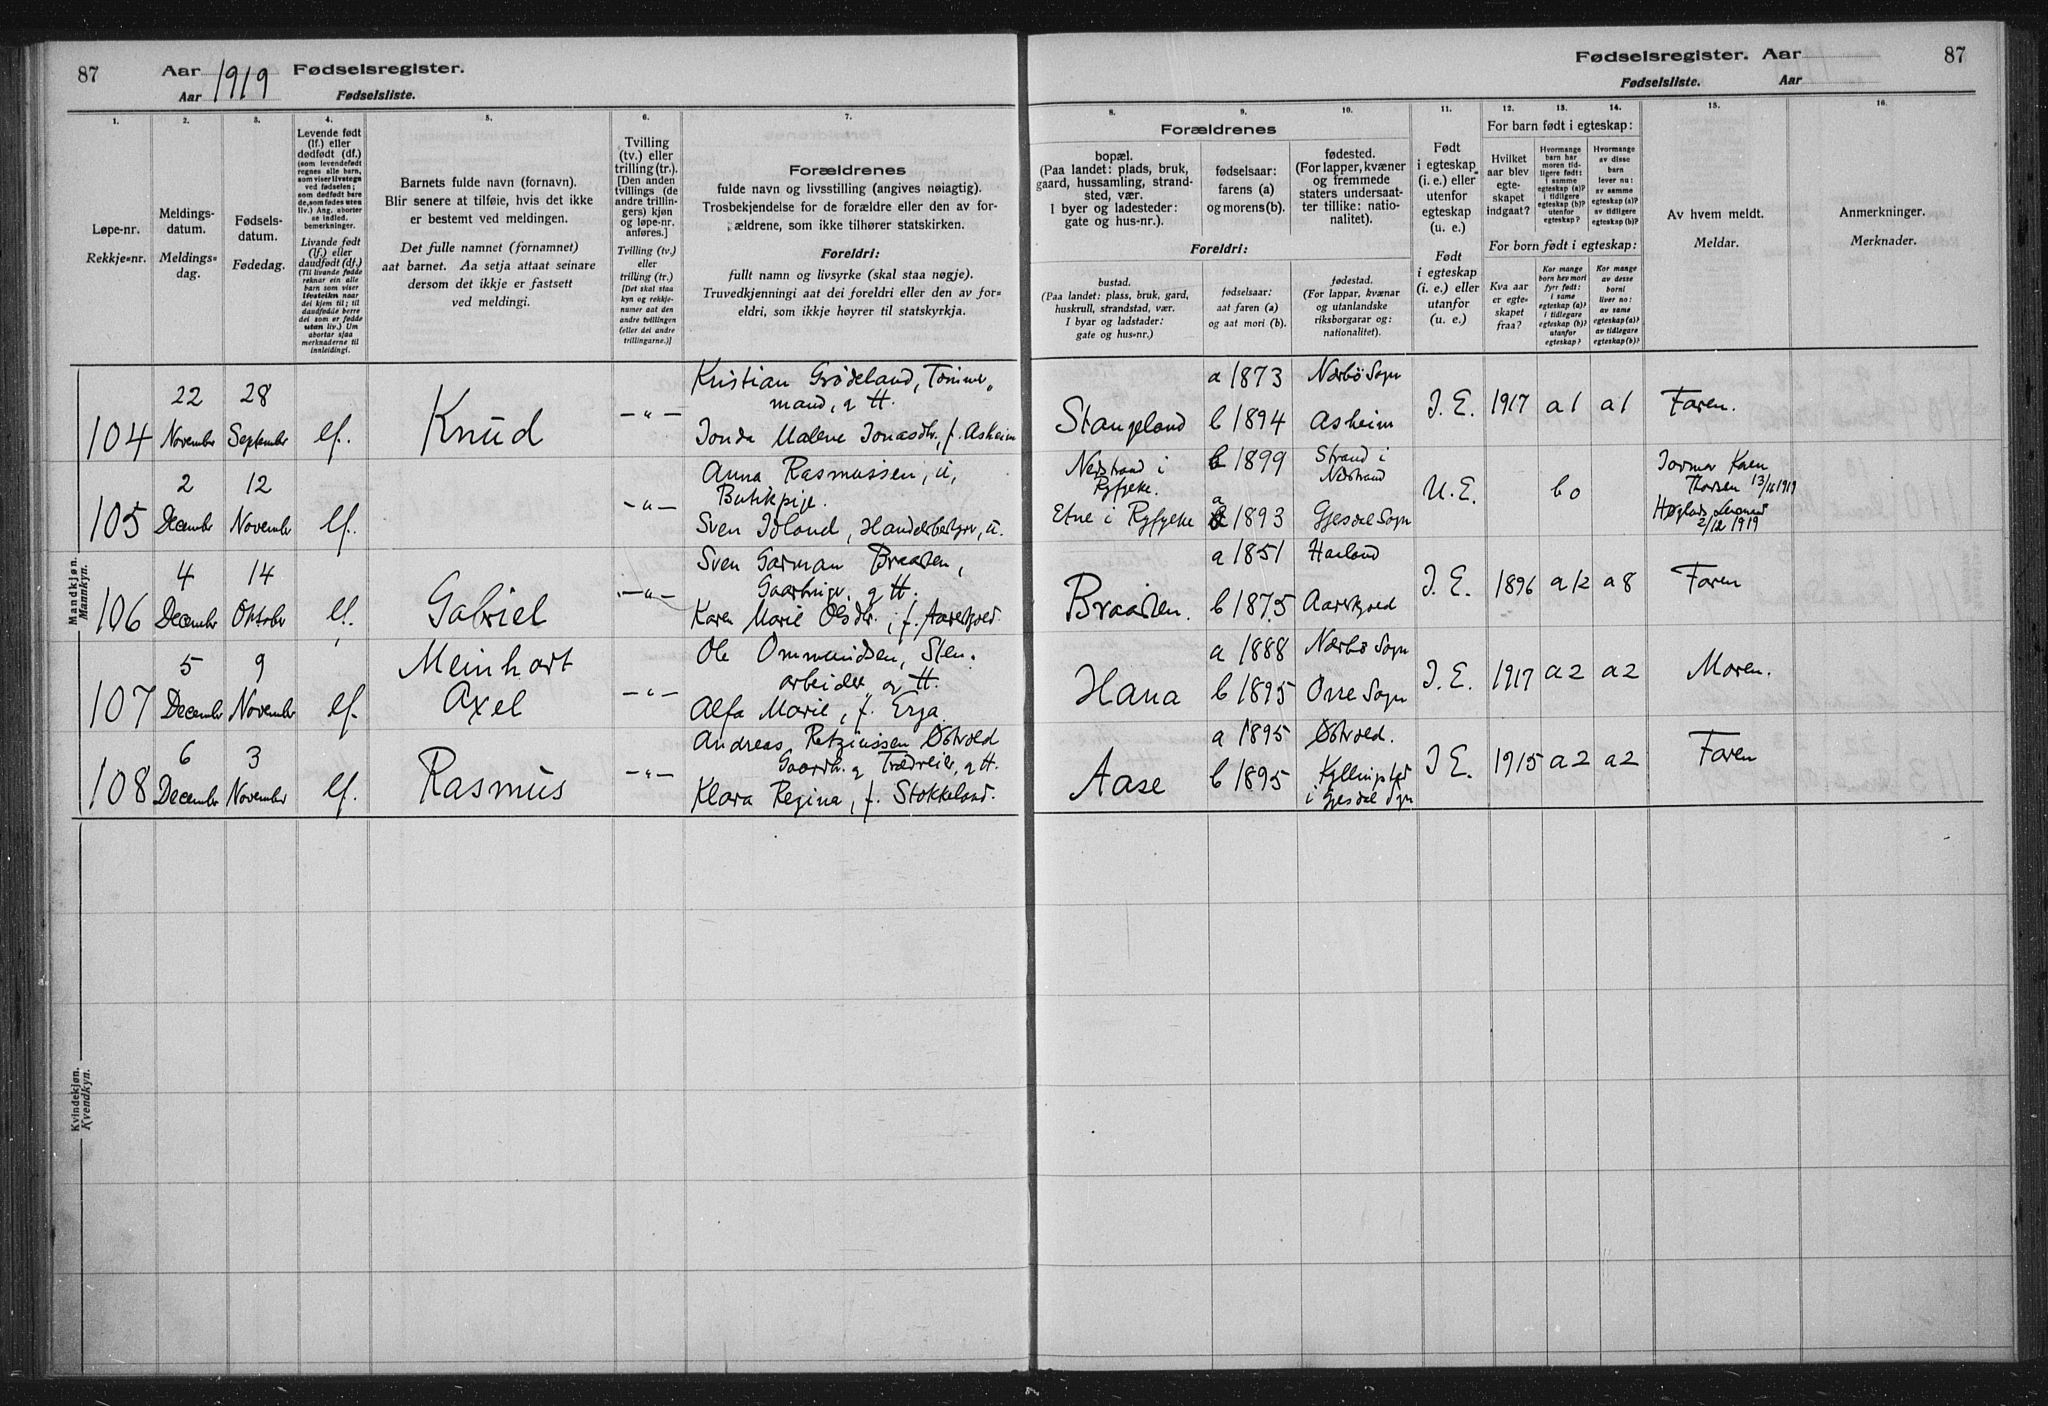 87
Aar 1919 Fødselsregister.
Aar Fødselsliste.
1.
Løpe-nr.
Rekkje-nr.
2.
Meldings-
datum.
Meldings-
dag.
3.
Fødsels-
datum.
Fødedag.
4.
Levende født
(lf.) eller
dødfødt (df.)
(som levendefødt
regnes alle barn,
som viser livstegn
ved fødselen;
som dødfødt bare
de, som fødes uten
liv.) Ang. aborter
se indled.
bemerkninger.
Livande født
(lf.) eller
daudfødt (df.)
(Til livande fødde
reknar ein alle
barn som viser
livsteikn naar
dei kjem til; til
daudfødde berre
dei som er fødde
utan liv.) Um
abortar sjaa
merknaderne til
innleidingi.
5.
Barnets fulde navn (fornavn).
Blir senere at tilføie, hvis det ikke
er bestemt ved meldingen.
Det fulle namnet (fornamnet)
aat barnet. Aa setja attaat seinare
dersom det ikkje er fastsett
ved meldingi.
6.
Tvilling
(tv.) eller
trilling (tr.).
[Den anden
tvillings (de
andre trillin-
gers) kjøn
og løpe-nr.
anføres.]
Tvilling (tv.)
eller
trilling (tr.)
[Det skal staa
kyn og rekkje-
numer aat den
andre tvillingen
(eller dei andre
trillingarne.)]
7.
Forældrenes
fulde navn og livsstilling (angives nøiagtig).
Trosbekjendelse for de forældre eller den av for-
ældrene, som ikke tilhører statskirken.
Foreldri:
fullt namn og livsyrke (skal staa nøgje).
Truvedkjenningi aat dei foreldri eller den av for-
eldri, som ikkje høyrer til statskyrkja.
Fødselsregister. Aar 87
Fødselsliste. Aar
Forældrenes
8.
bopæl.
(Paa landet: plads, bruk,
gaard, hussamling, strand-
sted, vær.
I byer og ladesteder:
gate og hus-nr.).
9.
fødselsaar:
farens (a)
og morens (b).
10.
fødested.
(For lapper, kvæner
og fremmede
staters undersaat-
ter tillike: natio-
nalitet).
Foreldri:
bustad.
(Paa landet: plass, bruk, gard,
huskrull, strandstad, vær.
I byar og ladstader:
gate og hus-nr.)
fødselsaar:
aat faren (a)
og aat mori (b).
fødestad.
(For lappar, kvænar
og utanlandske
riksborgarar og:
nationalitet).
11.
Født
i egteskap
(i. e.) eller
utenfor
egteskap
(u. e.)
Født
i egteskap
(i. e.) eller
utanfor
(u. e.)
For barn født i egteskap:
12.
Hvilket
aar blev
egte-
skapet
indgaat?
13.
Hvormange
barn har
moren tid-
ligere født:
i samme
egteskap (a)?
i tidligere
egteskap (b)?
utenfor
egteskap?
14.
Hvormange
av disse
barn
lever nu:
av samme
egteskap (a)?
av tidligere
egteskap (b)?
For born født i egteskap:
Kva aar
er egte-
skapet
fraa?
Kor mange
born hev mori
fyrr født:
i same
egteskap (a)?
i tidlegare
egteskap (b)?
utanfor
egteskap?
Kor mange
av desse
borni
liver no:
av same
egteskap (a)?
av tidlegare
egteskap (b)?
15.
Av hvem meldt.
Meldar.
16.
Anmerkninger.
Merknader.
Mandkjøn.
Mannkyn.
104
22 November
28 September
lf.
Knud
-"-
Kristian Grødeland, Tømmer-
mand, g H.
Jonda Malene Jonasdtr., f. Asheim
Stangeland
a 1873 Nærbø Sogn
b 1894 Asheim
I. E. 1917 a 1 a 1 Faren.
105
2 December
12 November
lf.
-"-
Anna Rasmussen, u,
Butikpige.
Sven Idland, Handelsbestyrer, u.
Nedstrand i
Ryfylke.
Etne i Ryfylke
b 1899 Strand i
Nedstrand
a 1893 Gjesdal Sogn
U. E. b 0
Jormor Karen
Thorsen 13/11 1919
2/12 1919
106
4 December
14 Oktober
lf.
Gabriel
-"-
Sven Garman Braasten,
Gaarbruger, g H.
Karen Marie Olsdtr., f. Aareskjold
Braasten.
a 1851 Hauland
b 1875 Aareskjold
I. E. 1896 a 12 a 8 Faren
107
5 December
9 November
lf.
Meinhart
Axel
-"-
Ole Ommundsen, Sten-
arbeider, g H.
Alfa Marie, f. Erga
Hana
a 1888 Nærbø Sogn
b 1895 Orre Sogn
I. E. 1917 a 2 a 2 Moren.
108
6 December
3 November
lf.
Rasmus
-"-
Andreas Retziussen Østvold
Gaardbr. g Trædreier, g H.
Klara Regina, f. Stokkeland.
Aase
a 1895 Østvold.
b 1895 Kyllingstad
i Gjesdal Sogn
I E. 1915 a 2 a 2 Faren
Kvindekjøn.
Kvendkyn.